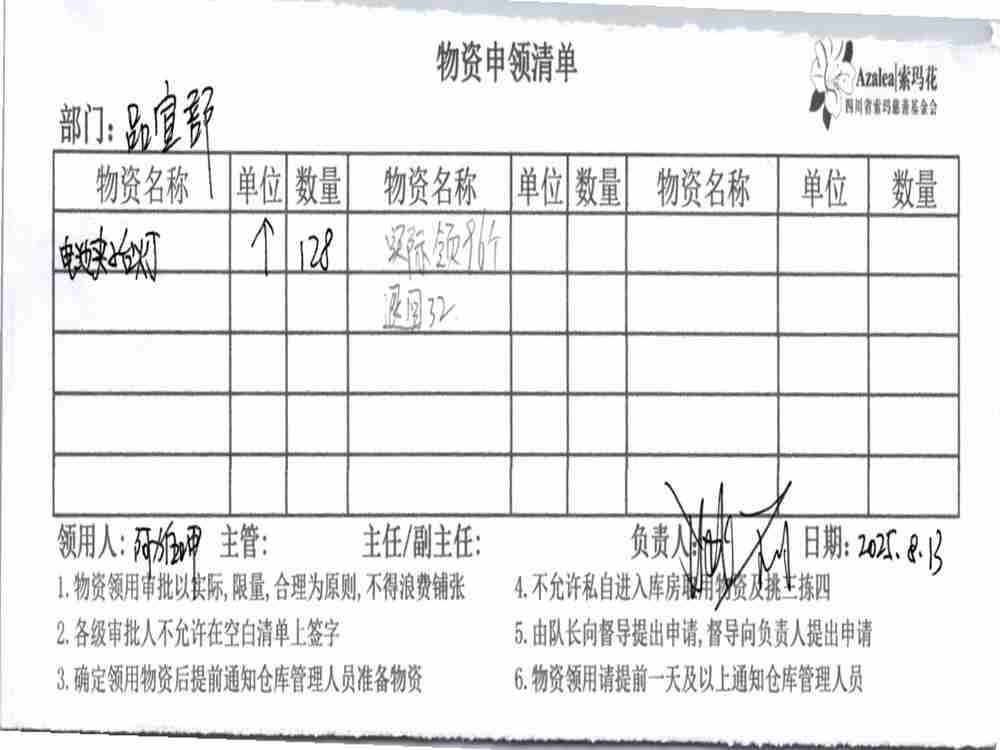 物资申领清单
Azalea|索玛花
四川省索玛慈善基金会
部门：品宣部
物资名称 单位 数量 物资名称 单位 数量 物资名称 单位 数量
电池夹子台灯 个 128 实际领96个
退回32.
领用人： 主管： 主任/副主任： 负责人： 日期：2025.8.13
1.物资领用审批以实际,限量,合理为原则,不得浪费铺张
2.各级审批人不允许在空白清单上签字
3.确定领用物资后提前通知仓库管理人员准备物资
4.不允许私自进入库房取用物资及挑三拣四
5.由队长向督导提出申请,督导向负责人提出申请
6.物资领用请提前一天及以上通知仓库管理人员